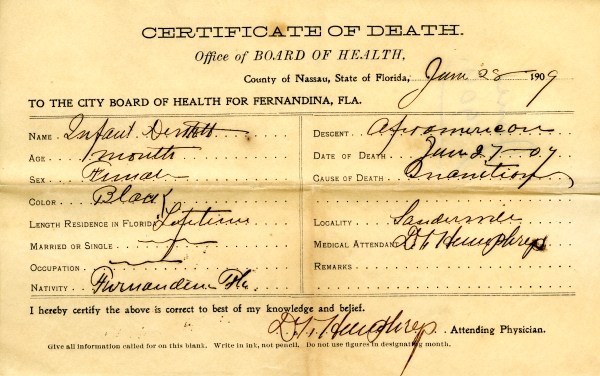 CERTIFICATE OF DEATH.
Office of BOARD OF HEALTH,
County of Nassau, State of Florida, June 28 1909
TO THE CITY BOARD OF HEALTH FOR FERNANDINA, FLA.
NAME Infant
AGE month
SEX Female
COLOR Black
LENGTH RESIDENCE IN FLORIDA Lifetime
MARRIED OR SINGLE
OCCUPATION
NATIVITY Fernandina Fla.
DESCENT Afroamerican
DATE OF DEATH June 27-09
CAUSE OF DEATH Inanition
LOCALITY
MEDICAL ATTENDANT Humphreys
REMARKS
I hereby certify the above is correct to best of my knowledge and belief.
Humphreys Attending Physician.
Give all information called for on this blank. Write in ink, not pencil. Do not use figures in designating month.